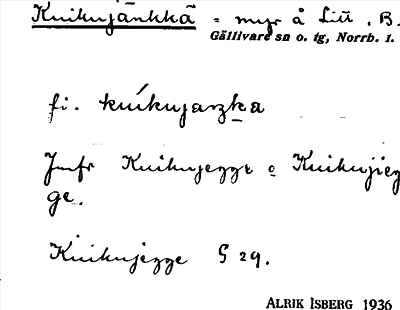 Kuikujänkkä = myr å Litt. B.
Gällivare sn o. tg, Norrb. l.
fi. kuikujaŋka
Jmfr Kuikujegge o Kuikujieg
ge.
Kuikujegge § 29.
ALRIK ISBERG 1936